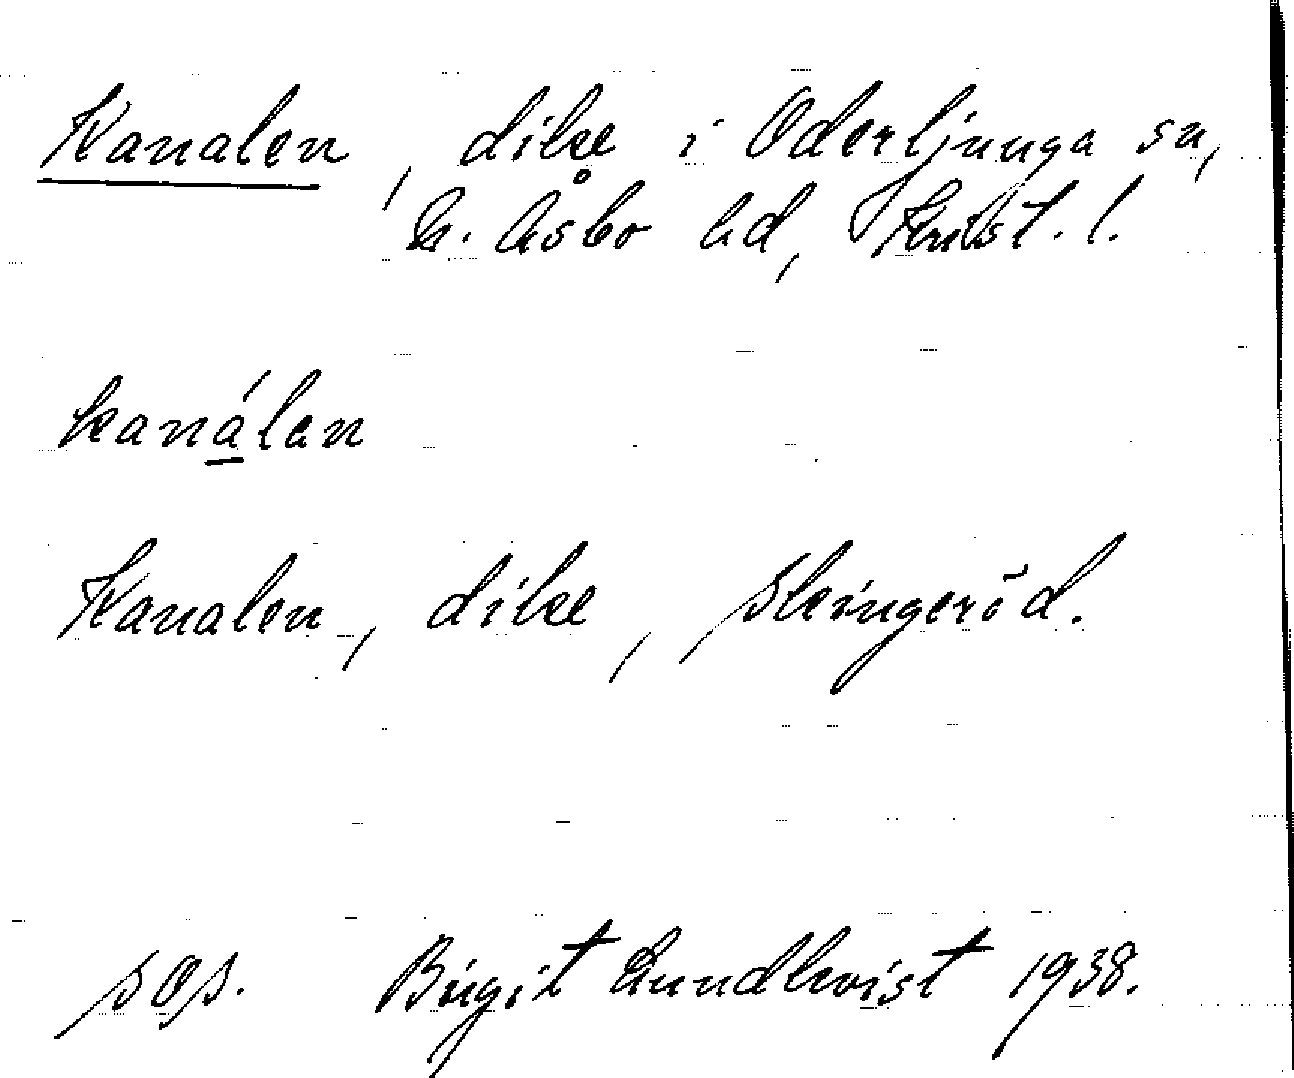 Kanalen, dike i Oderljunga sn,
N. Åsbo hd, Krist. l.
kanálan
Kanalen, dike, Skingeröd.
sop. Birgit Lundkvist 1938.